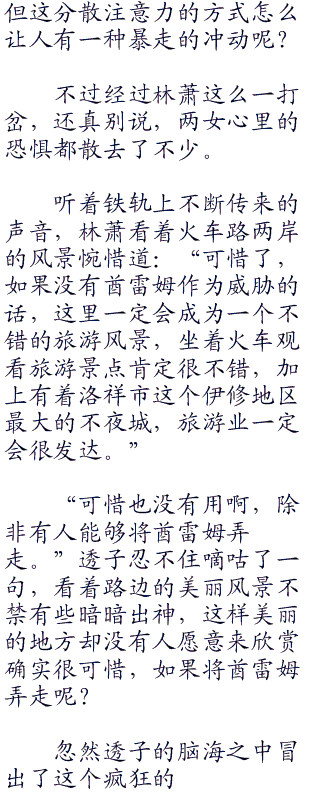 但这分散注意力的方式怎么
让人有一种暴走的冲动呢？
不过经过林萧这么一打
岔，还真别说，两女心里的
恐惧都散去了不少。
听着铁轨上不断传来的
声音，林萧看着火车路两岸
的风景惋惜道：“可惜了，
如果没有酋雷姆作为威胁的
话，这里一定会成为一个不
错的旅游风景，坐着火车观
看旅游景点肯定很不错，加
上有着洛祥市这个伊修地区
最大的不夜城，旅游业一定
会很发达。”
“可惜也没有用啊，除
非有人能够将酋雷姆弄
走。”透子忍不住嘀咕了一
句，看着路边的美丽风景不
禁有些暗暗出神，这样美丽
的地方却没有人愿意来欣赏
确实很可惜，如果将酋雷姆
弄走呢？
忽然透子的脑海之中冒
出了这个疯狂的